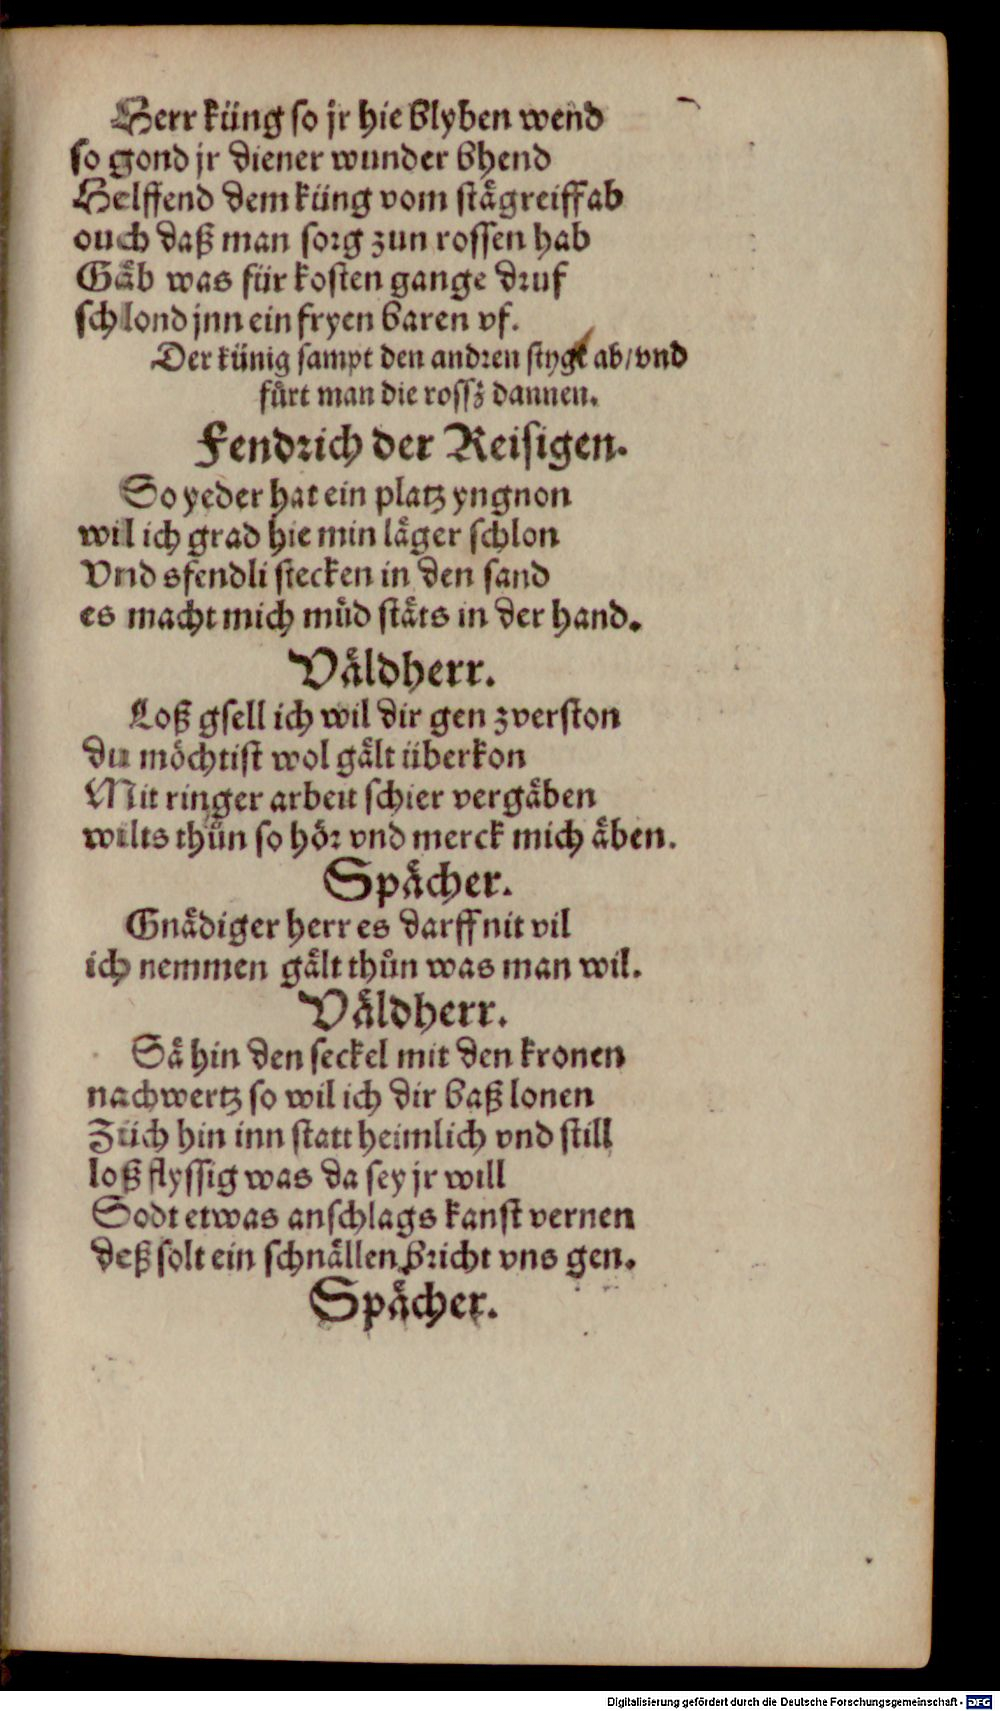 Herr küng so jr hie blyben wend
so gond jr diener wunder bhend
Helffend dem küng vom stägreiff ab
ouch daß man sorg zun rossen hab
Gäb was für kosten gange druf
schlond jnn ein fryen baren vf.
Der künig sampt den andren stygt ab/ vnd
fürt man die rossz dannen.
Fendrich der Reisigen.
So yeder hat ein platz yngnon
wil ich grad hie min läger schlon
Vnd sfendli stecken in den sand
es macht mich müd stäts in der hand.
Väldherr.
Loß gsell ich wil dir gen zverston
du möchtist wol gält überkon
Mit ringer arbeit schier vergäben
wilts thůn so hör vnd merck mich äben.
Spächer.
Gnädiger herr es darff nit vil
ich nemmen gält thůn was man wil.
Väldherr.
Sä hin den seckel mit den kronen
nachwertz so wil ich dir baß lonen
Züch hin inn statt heimlich vnd still
loß flyssig was da sey jr will
So dt etwas anschlags kanst vernen
deß solt ein schnällen bricht vns gen.
Spächer.
Digitalisierung gefördert durch die Deutsche Forschungsgemeinschaft - DFG